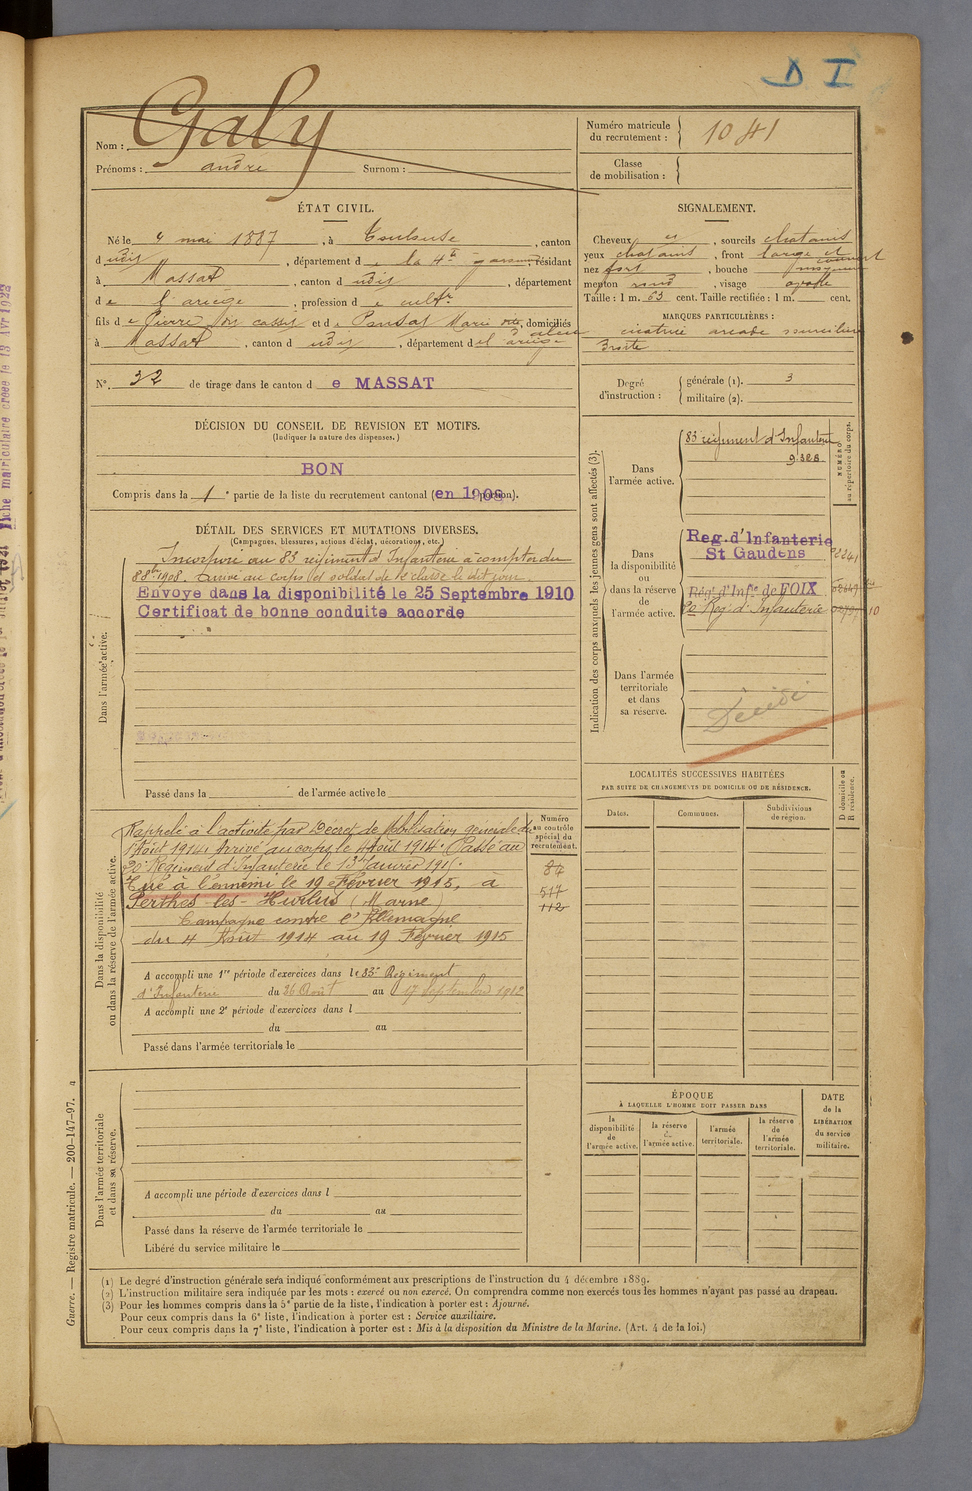 D I
Nom : Galy
Prénoms : andré Surnom :
Numéro matricule du recrutement : 1041
Classe de mobilisation :
ÉTAT CIVIL.
Né le 4 mai 1887, à Toulouse, canton
d udit, département d e la Hte garonne, résidant
à Massat, canton d udit, département
d e l'ariège, profession d e cultr
fils d e Pierre et d e Marie domiciliés
à Massat, canton d udit, département d e l'ariège
N° 32 de tirage dans le canton d e MASSAT
SIGNALEMENT.
Cheveux et, sourcils chatains
yeux chatains, front large et
nez fort, bouche moyenne
menton rond, visage ovale
Taille : 1 m. 63 cent. Taille rectifiée : 1 m. cent.
MARQUES PARTICULIÈRES :
cicatrice arcade sourcilière
droite
Degré d'instruction : générale (1). 3
militaire (2).
DÉCISION DU CONSEIL DE REVISION ET MOTIFS.
(Indiquer la nature des dispenses.)
BON
Compris dans la 1e partie de la liste du recrutement cantonal (en 1908 portion).
DÉTAIL DES SERVICES ET MUTATIONS DIVERSES.
(Campagnes, blessures, actions d'éclat, décorations, etc.)
Dans l'armée active.
Incorporé au 83 régiment d'Infanterie à compter du
8 8bre 1908. Arrivé au corps et soldat de 2e classe le dit jour.
Envoye dans la disponibilité le 25 Septembre 1910
Certificat de bonne conduite accorde
Passé dans la de l'armée active le
Indication des corps auxquels les jeunes gens sont affectés (3).
NUMÉRO au répertoire du corps.
Dans l'armée active.
83 régiment d'Infanterie
9328
Dans la disponibilité ou dans la réserve de l'armée active.
Reg. d'Infanterie
St Gaudens
Rég. d'Infie de FOIX
Reg. d'Infanterie
10
Dans l'armée territoriale et dans sa réserve.
Décédé
Dans la disponibilité ou dans la réserve de l'armée active.
Numéro au contrôle spécial du recrutement.
Rappelé à l'activité par Décret de Mobilisation générale du
1 Août 1914. Arrivé au corps le 4 Août 1914. Passé au
20e Régiment d'Infanterie le 13 Janvier 1915.
Tué à l'ennemi le 19 Février 1915, à
Perthes-les-Hurlus (Marne)
Campagne contre l'Allemagne
du 4 Août 1914 au 19 Février 1915
84
517
112
A accompli une 1re période d'exercices dans le 83e Régiment
d'Infanterie du 26 Août au 17 Septembre 1912
A accompli une 2e période d'exercices dans l
du au
Passé dans l'armée territoriale le
LOCALITÉS SUCCESSIVES HABITÉES
PAR SUITE DE CHANGEMENTS DE DOMICILE OU DE RÉSIDENCE.
Dates. Communes. Subdivisions de région.
D domicile ou R résidence.
Dans l'armée territoriale et dans sa réserve.
A accompli une période d'exercices dans l
du au
Passé dans la réserve de l'armée territoriale le
Libéré du service militaire le
ÉPOQUE
À LAQUELLE L'HOMME DOIT PASSER DANS
la disponibilité de l'armée active.
la réserve de l'armée active.
l'armée territoriale.
la réserve de l'armée territoriale.
DATE de la LIBÉRATION du service militaire.
Guerre. — Registre matricule. — 200-147-97.
(1) Le degré d'instruction générale sera indiqué conformément aux prescriptions de l'instruction du 4 décembre 1889.
(2) L'instruction militaire sera indiquée par les mots : exercé ou non exercé. On comprendra comme non exercés tous les hommes n'ayant pas passé au drapeau.
(3) Pour les hommes compris dans la 5e partie de la liste, l'indication à porter est : Ajourné.
Pour ceux compris dans la 6e liste, l'indication à porter est : Service auxiliaire.
Pour ceux compris dans la 7e liste, l'indication à porter est : Mis à la disposition du Ministre de la Marine. (Art. 4 de la loi.)